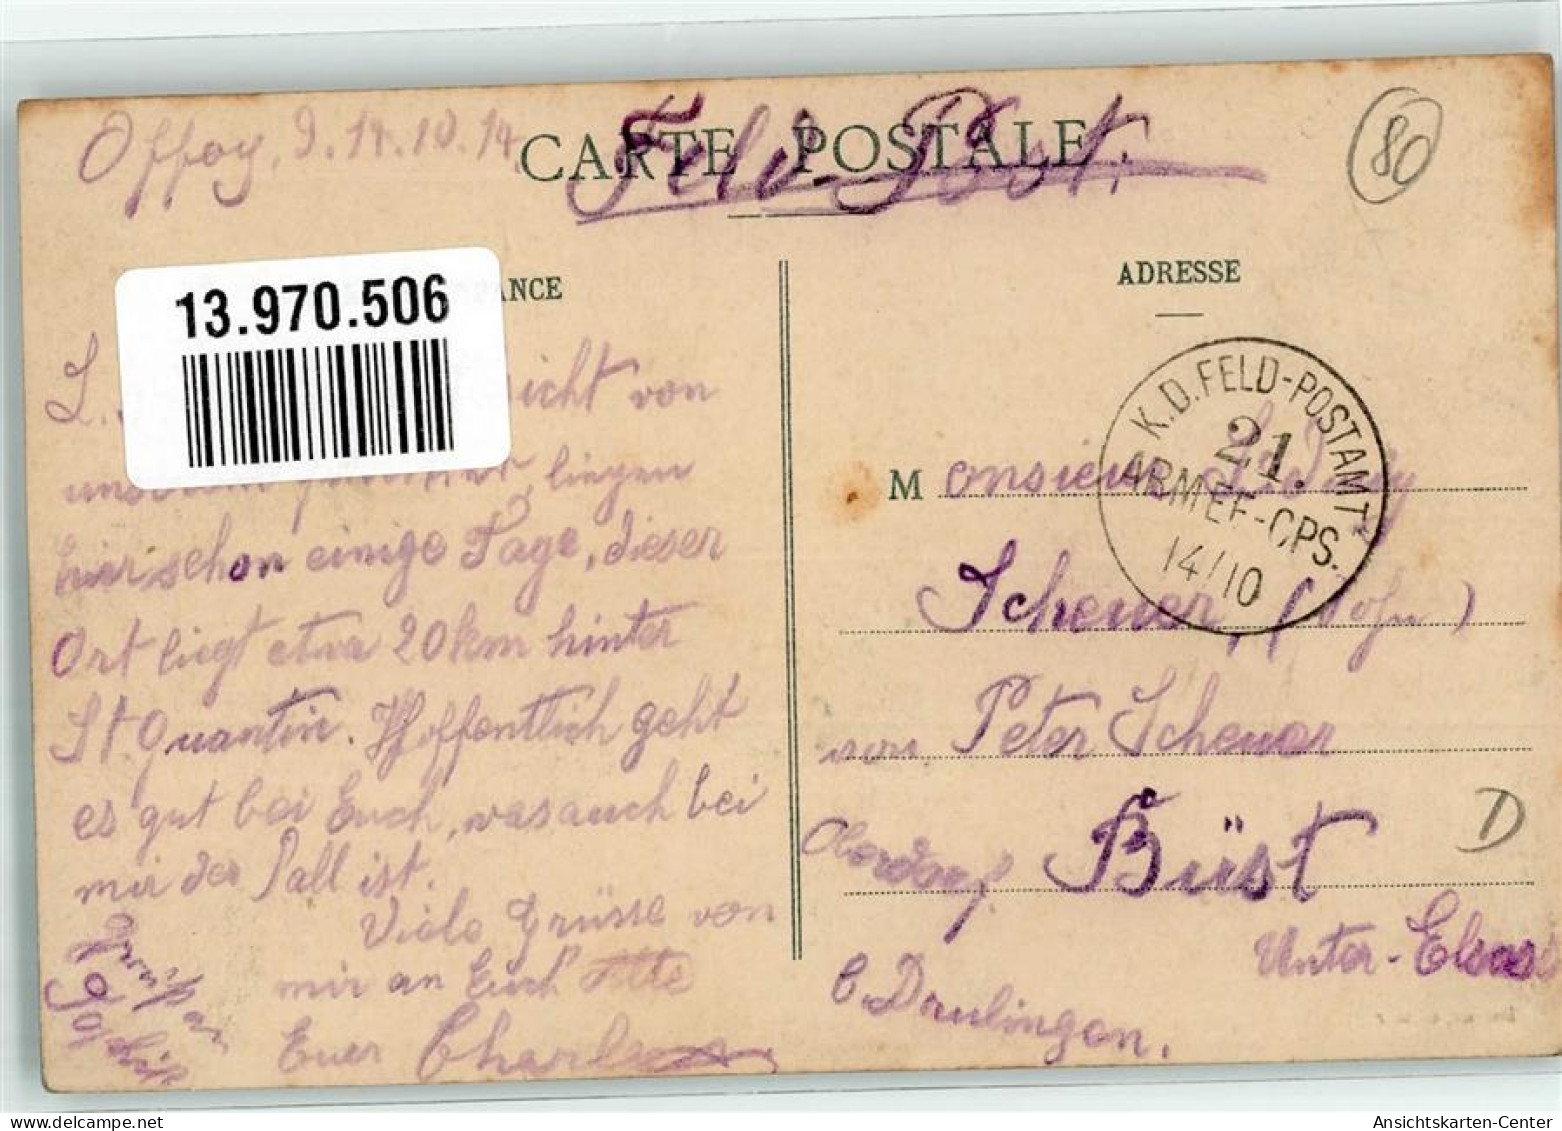 Offoy, d. 14.10.14
CARTE POSTALE
Feld-Post.
80
13.970.506
ANCE
ADRESSE
K.D. FELD-POSTAMT
21.
ARMEE-CPS.
14/10
L. icht von
liegen
hier schon einige Tage, dieser
Ort liegt etwa 20 km hinter
St. Quantin. Hoffentlich geht
es gut bei Euch, was auch bei
mir der Fall ist.
Viele Grüsse von
mir an Euch Alle
Euer Charles
Monsieur
Scheuer, (Sohn)
von Peter Scheuer
Büst
Unter-Elsass
b. Drulingen.
D
Ansichtskarten-Center